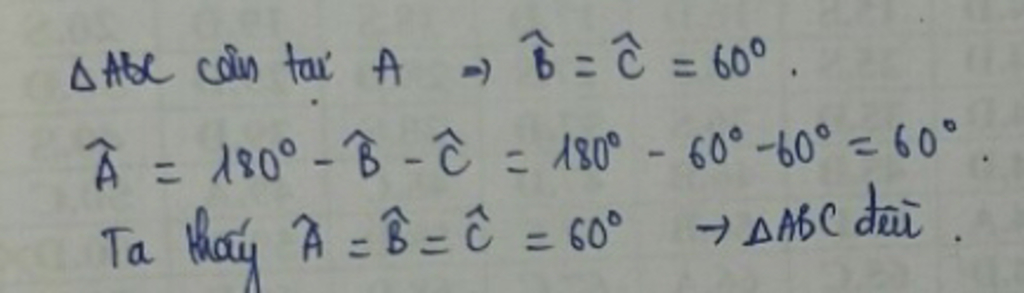 ΔABC cân tại A → B̂ = Ĉ = 60°.
Â = 180° - B̂ - Ĉ = 180° - 60° - 60° = 60°.
Ta thấy Â = B̂ = Ĉ = 60° → ΔABC đều.